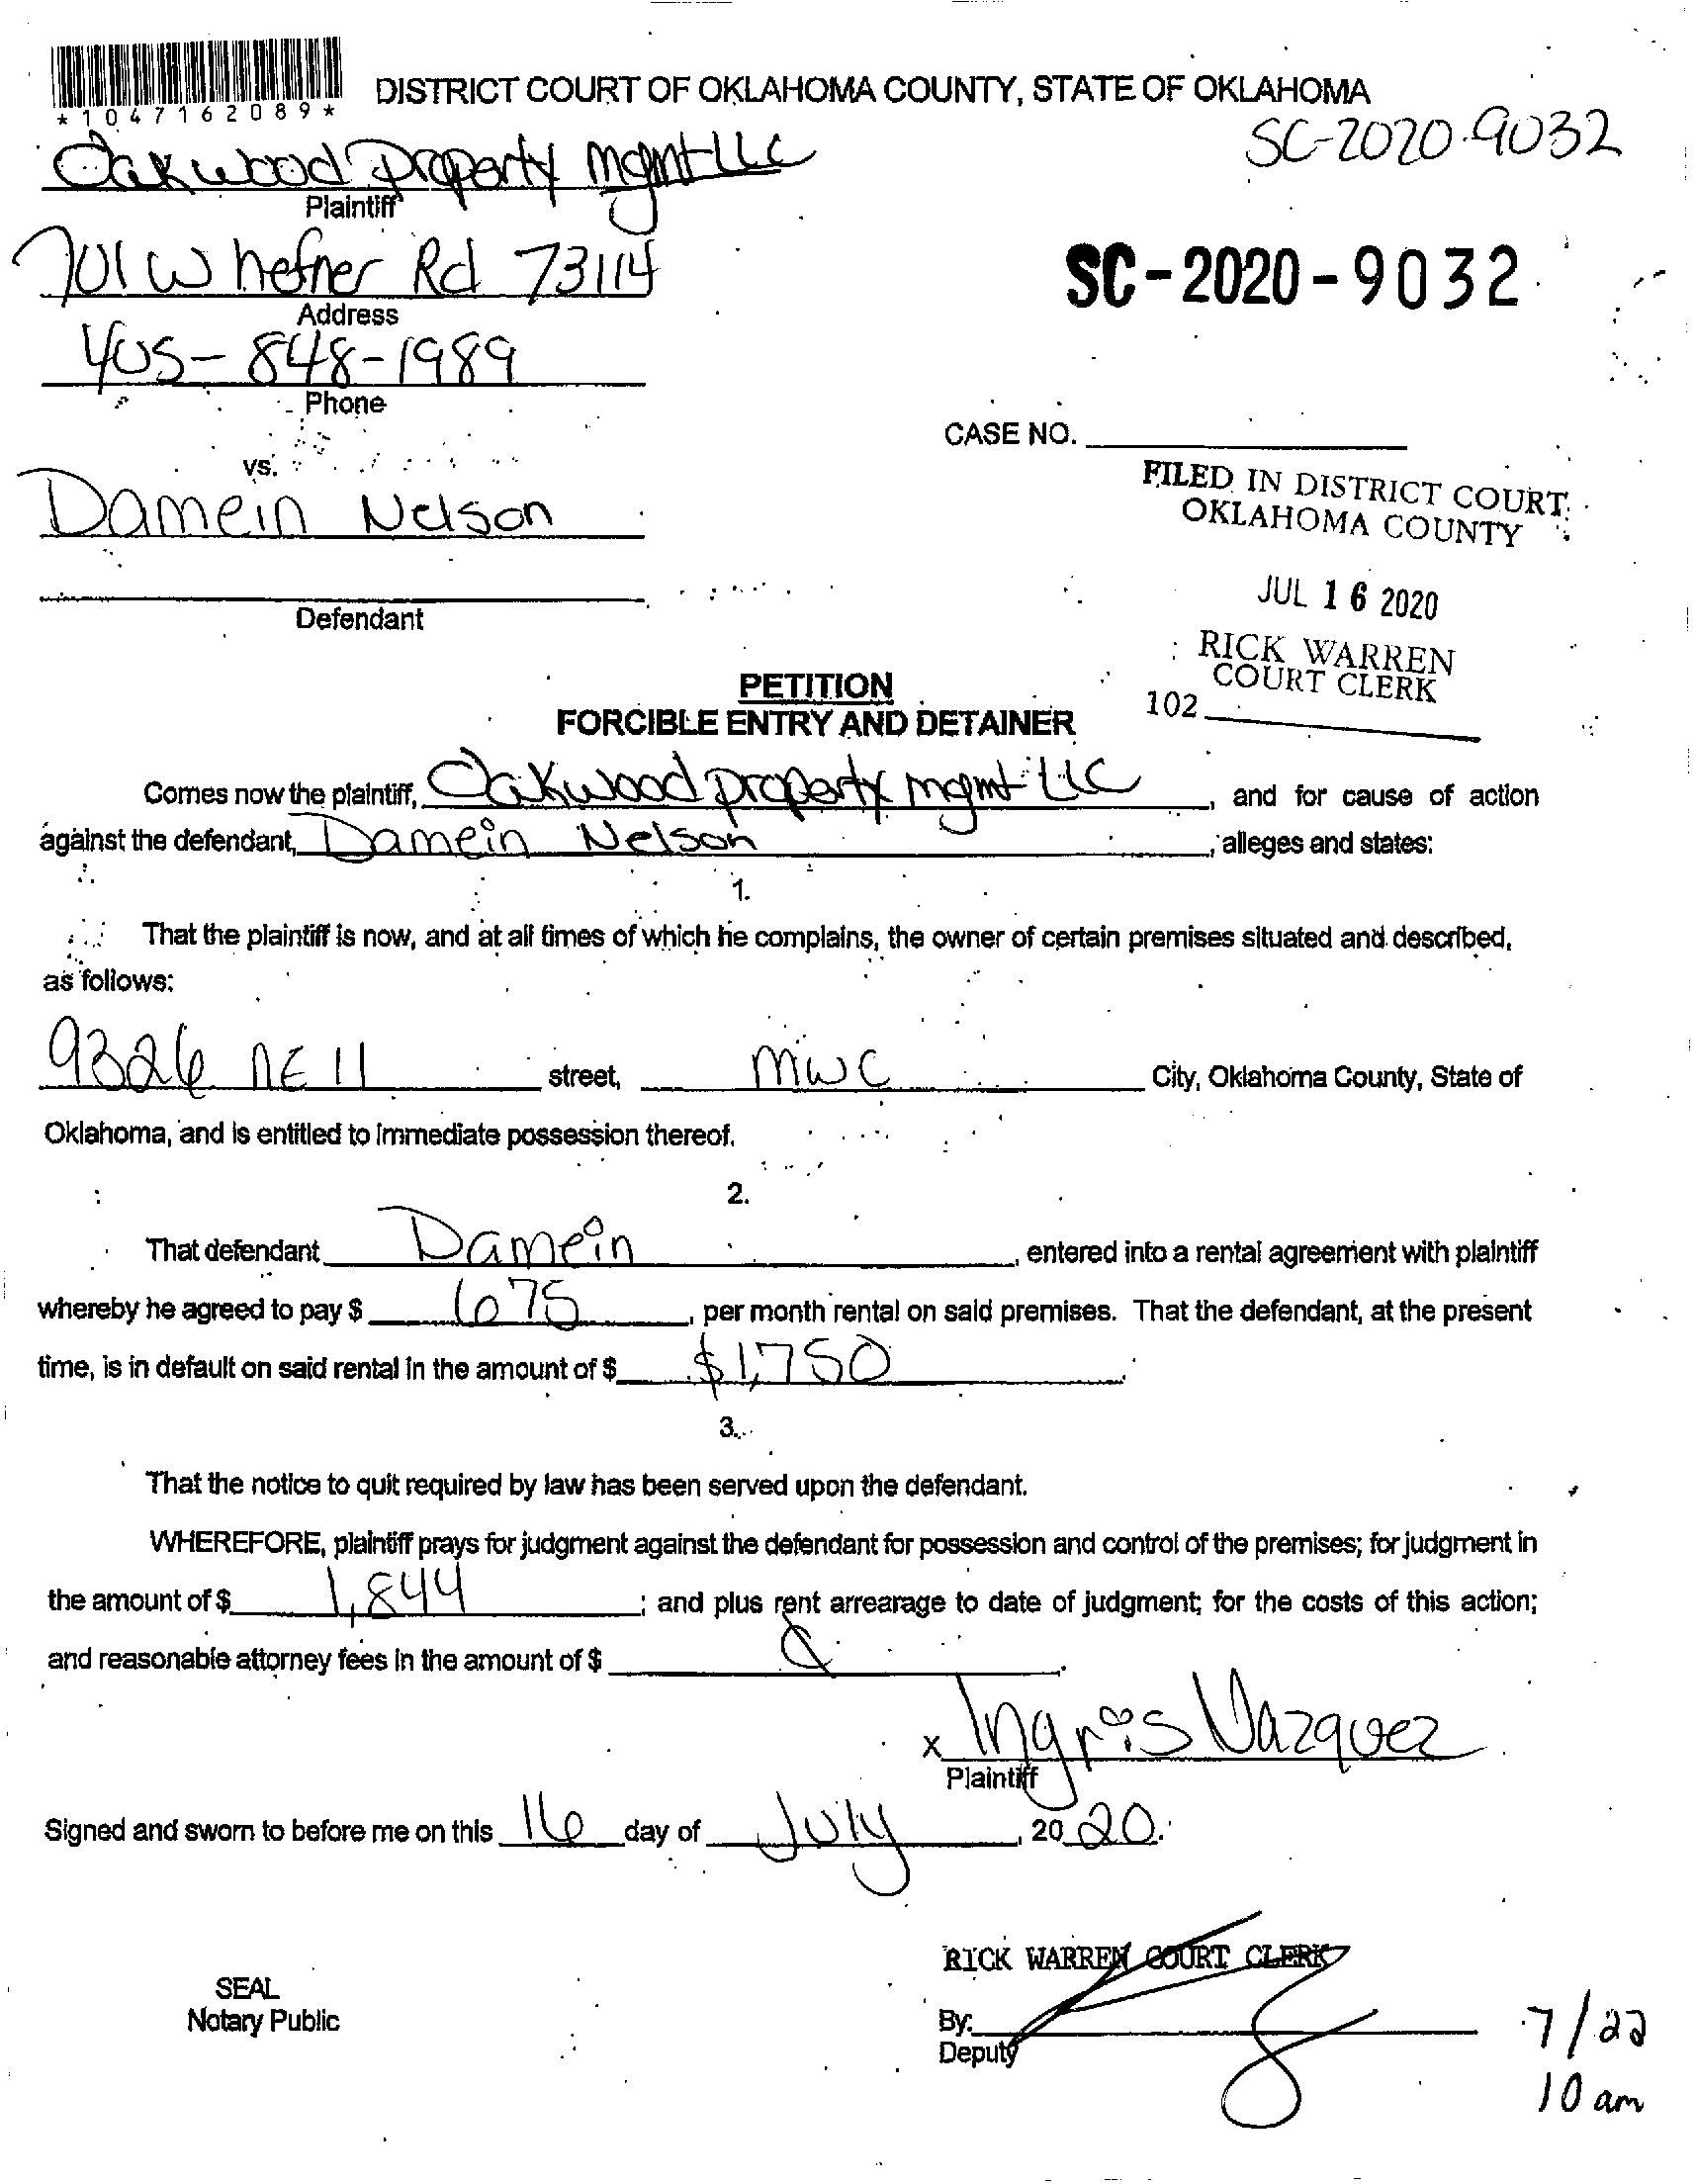 *1047162089*
DISTRICT COURT OF OKLAHOMA COUNTY, STATE OF OKLAHOMA
SC-2020-9032
Oakwood Property mgmt LLC
Plaintiff
701 W hefner Rd 73114
Address
SC-2020-9032
405-848-1989
Phone
CASE NO.
vs.
FILED IN DISTRICT COURT
OKLAHOMA COUNTY
Damein Nelson
JUL 16 2020
Defendant
RICK WARREN
COURT CLERK
102
PETITION
FORCIBLE ENTRY AND DETAINER
Comes now the plaintiff, Oakwood property mgmt LLC, and for cause of action
against the defendant, Damein Nelson, alleges and states:
1.
That the plaintiff is now, and at all times of which he complains, the owner of certain premises situated and described,
as follows:
9326 NE 11 street, MWC City, Oklahoma County, State of
Oklahoma, and is entitled to immediate possession thereof.
2.
That defendant Damein, entered into a rental agreement with plaintiff
whereby he agreed to pay $ 675, per month rental on said premises. That the defendant, at the present
time, is in default on said rental in the amount of $ $1,750.
3.
That the notice to quit required by law has been served upon the defendant.
WHEREFORE, plaintiff prays for judgment against the defendant for possession and control of the premises; for judgment in
the amount of $ 1,844; and plus rent arrearage to date of judgment; for the costs of this action;
and reasonable attorney fees in the amount of $
x Ingris Vazquez
Plaintiff
Signed and sworn to before me on this 16 day of July, 20 20.
RICK WARREN COURT CLERK
SEAL
Notary Public
By:
Deputy
7/22
10 am